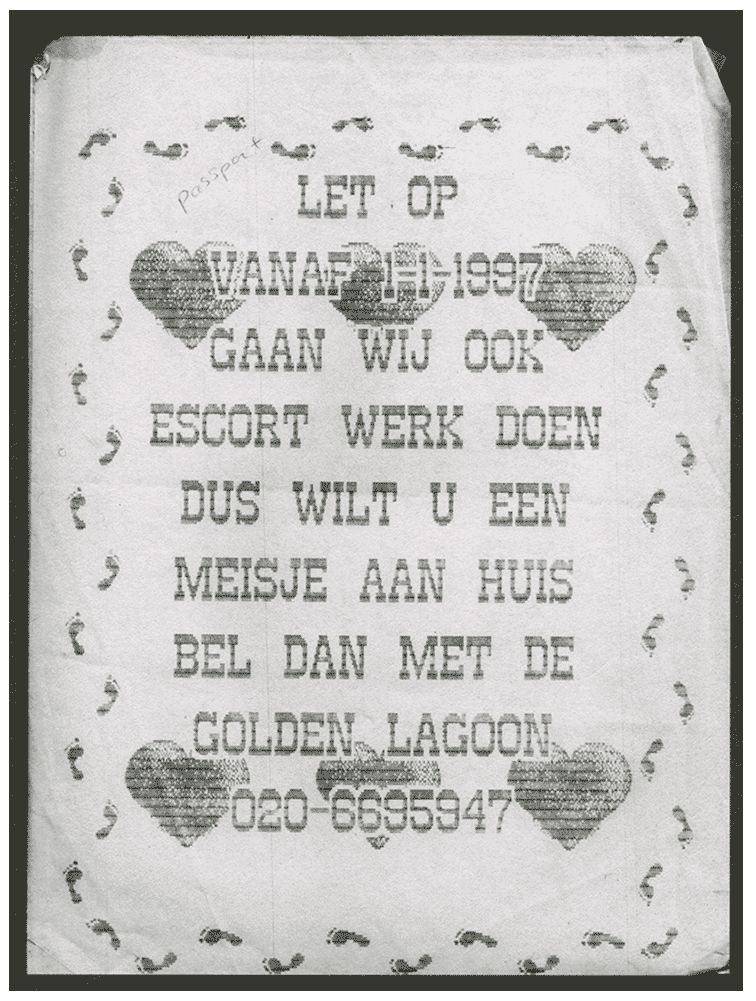 passport
LET OP
VANAF 1-1-1997
GAAN WIJ OOK
ESCORT WERK DOEN
DUS WILT U EEN
MEISJE AAN HUIS
BEL DAN MET DE
GOLDEN LAGOON
020-6695947